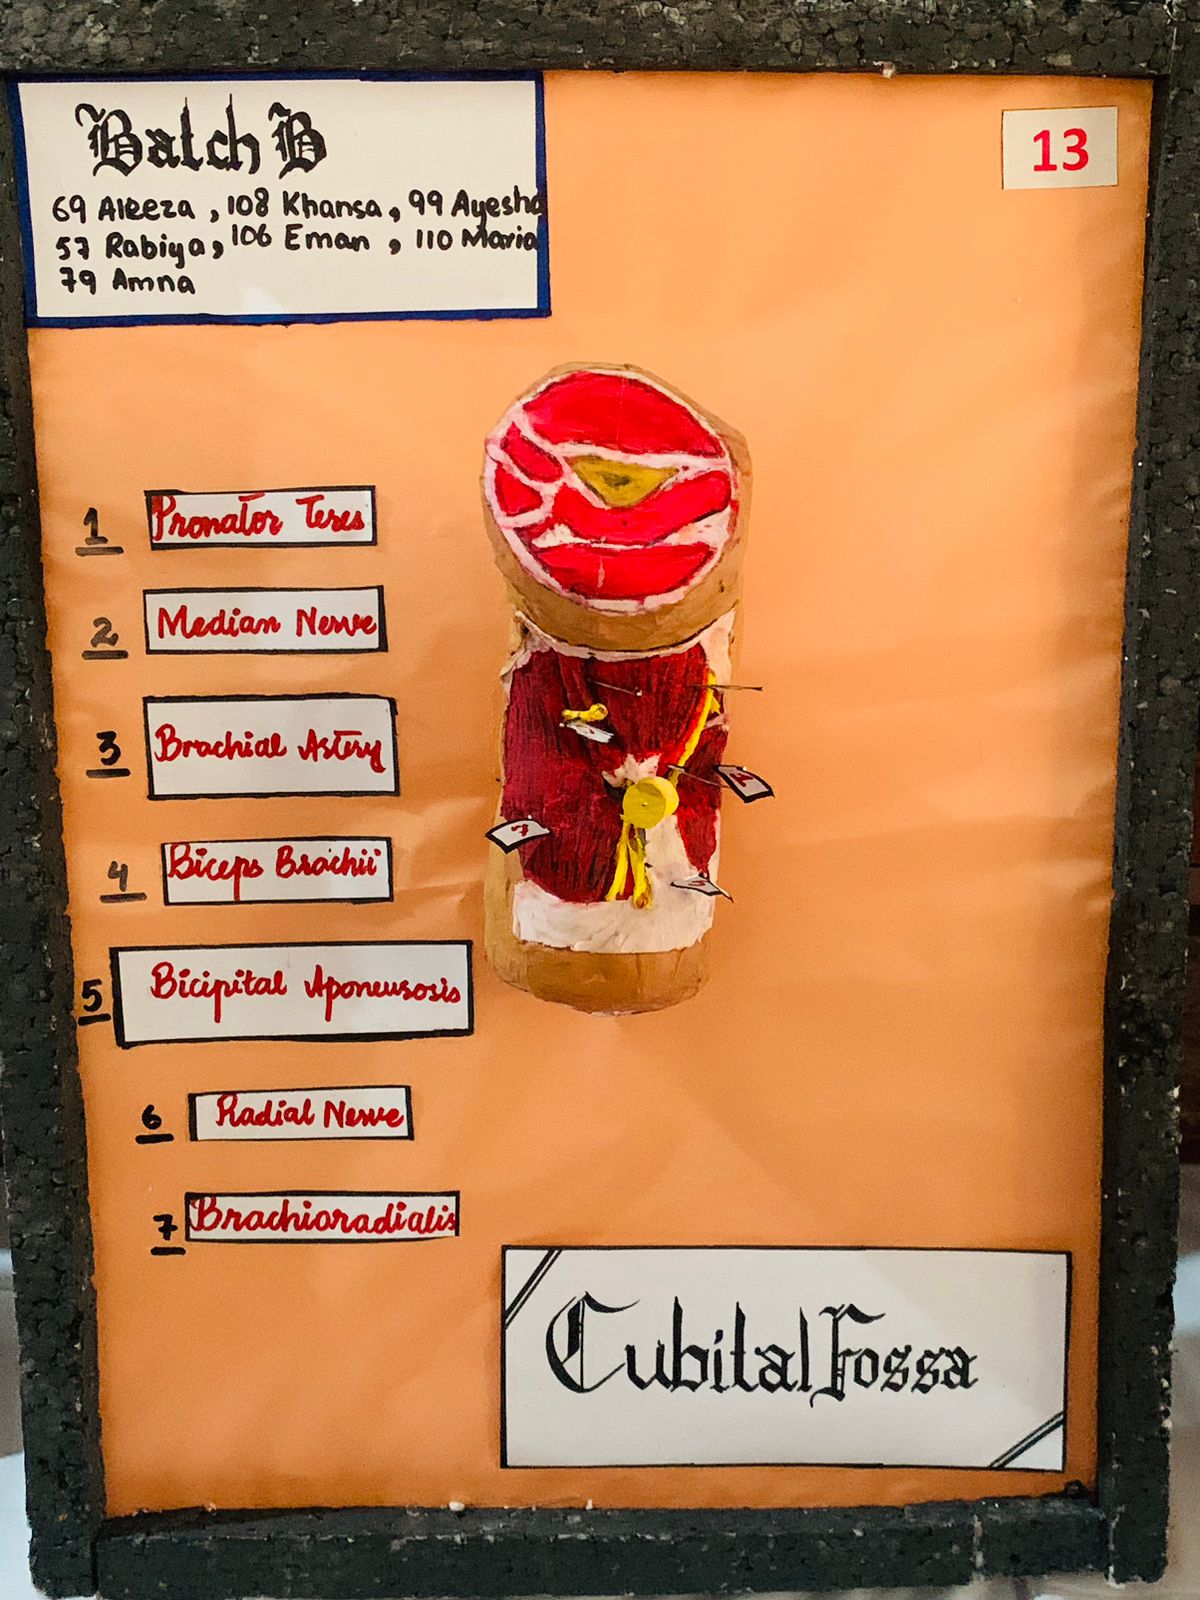 Batch B
69 Aleeza , 108 Khansa, 99 Ayesha
57 Rabiya, 106 Eman , 110 Maria
79 Amna
13
1 Pronator Teres
2 Median Nerve
3 Brachial Artery
4 Biceps Brachii
5 Bicipital Aponeurosis
6 Radial Nerve
7 Brachioradialis
7
1
5
Cubital Fossa